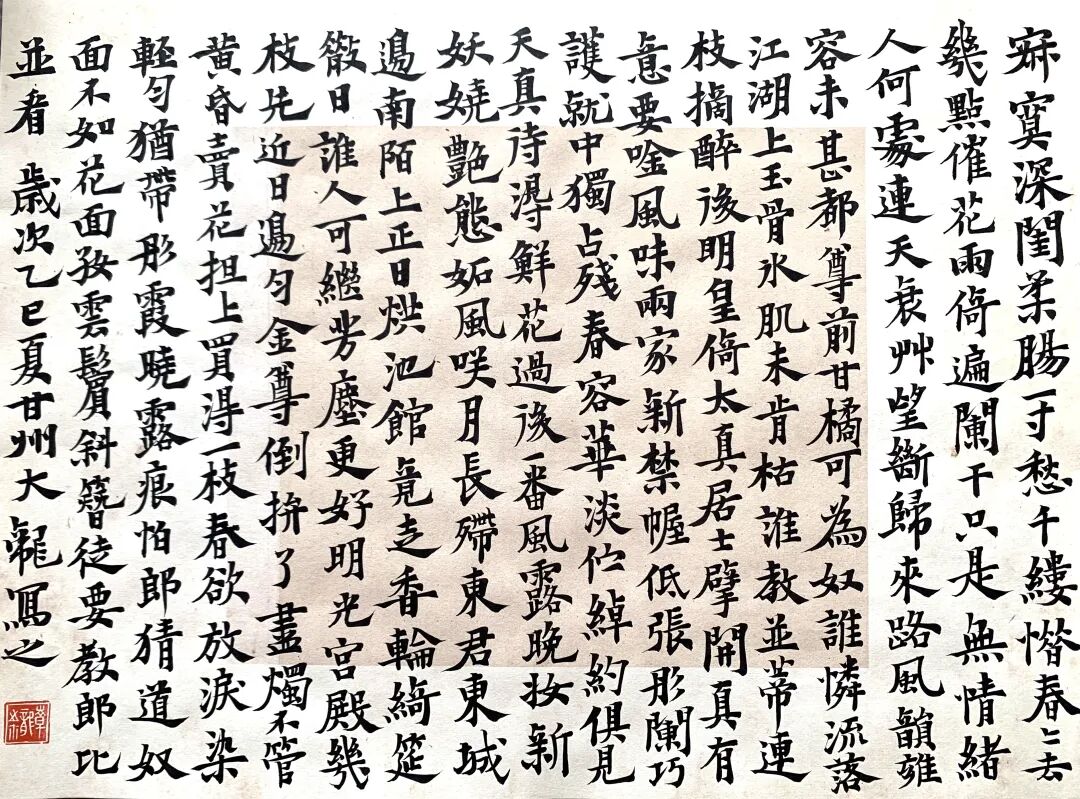 寂寞深閨柔腸一寸愁千縷惜春〻去
幾點催花雨倚遍闌干只是無情緒
人何處連天衰艸望斷歸來路風韻雍
容未甚都尊前甘橘可為奴誰憐流落
江湖上玉骨氷肌未肯枯誰教並蒂連
枝摘醉後明皇倚太真居士擘開真有
意要唫風味兩家新禁幄低張彤闌巧
護就中獨占残春容華淡伫綽約俱見
天真待淂鮮花過後一番風露晚妆新
妖嬈艷態妬風咲月長殢東君東城
邊南陌上正日烘池館竟走香輪綺筵
散日誰人可繼芳塵更好明光宮殿幾
枝先近日邊匀金尊倒拚了盡燭不管
黄昏賣花担上買淂一枝春欲放淚染
輕匀猶帶彤霞曉露痕怕郎猜道奴
面不如花面好雲鬢斜簪徒要教郎比
並看 歲次乙巳夏甘州大龍寫之